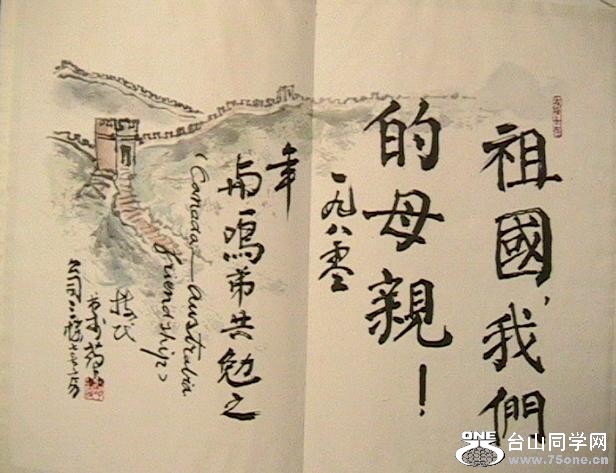 祖國，我們
的母親！
一九八零
年
与鳴弟共勉之
(Canada Australia
friendship)
ONE
台山同学网
www.75one.cn